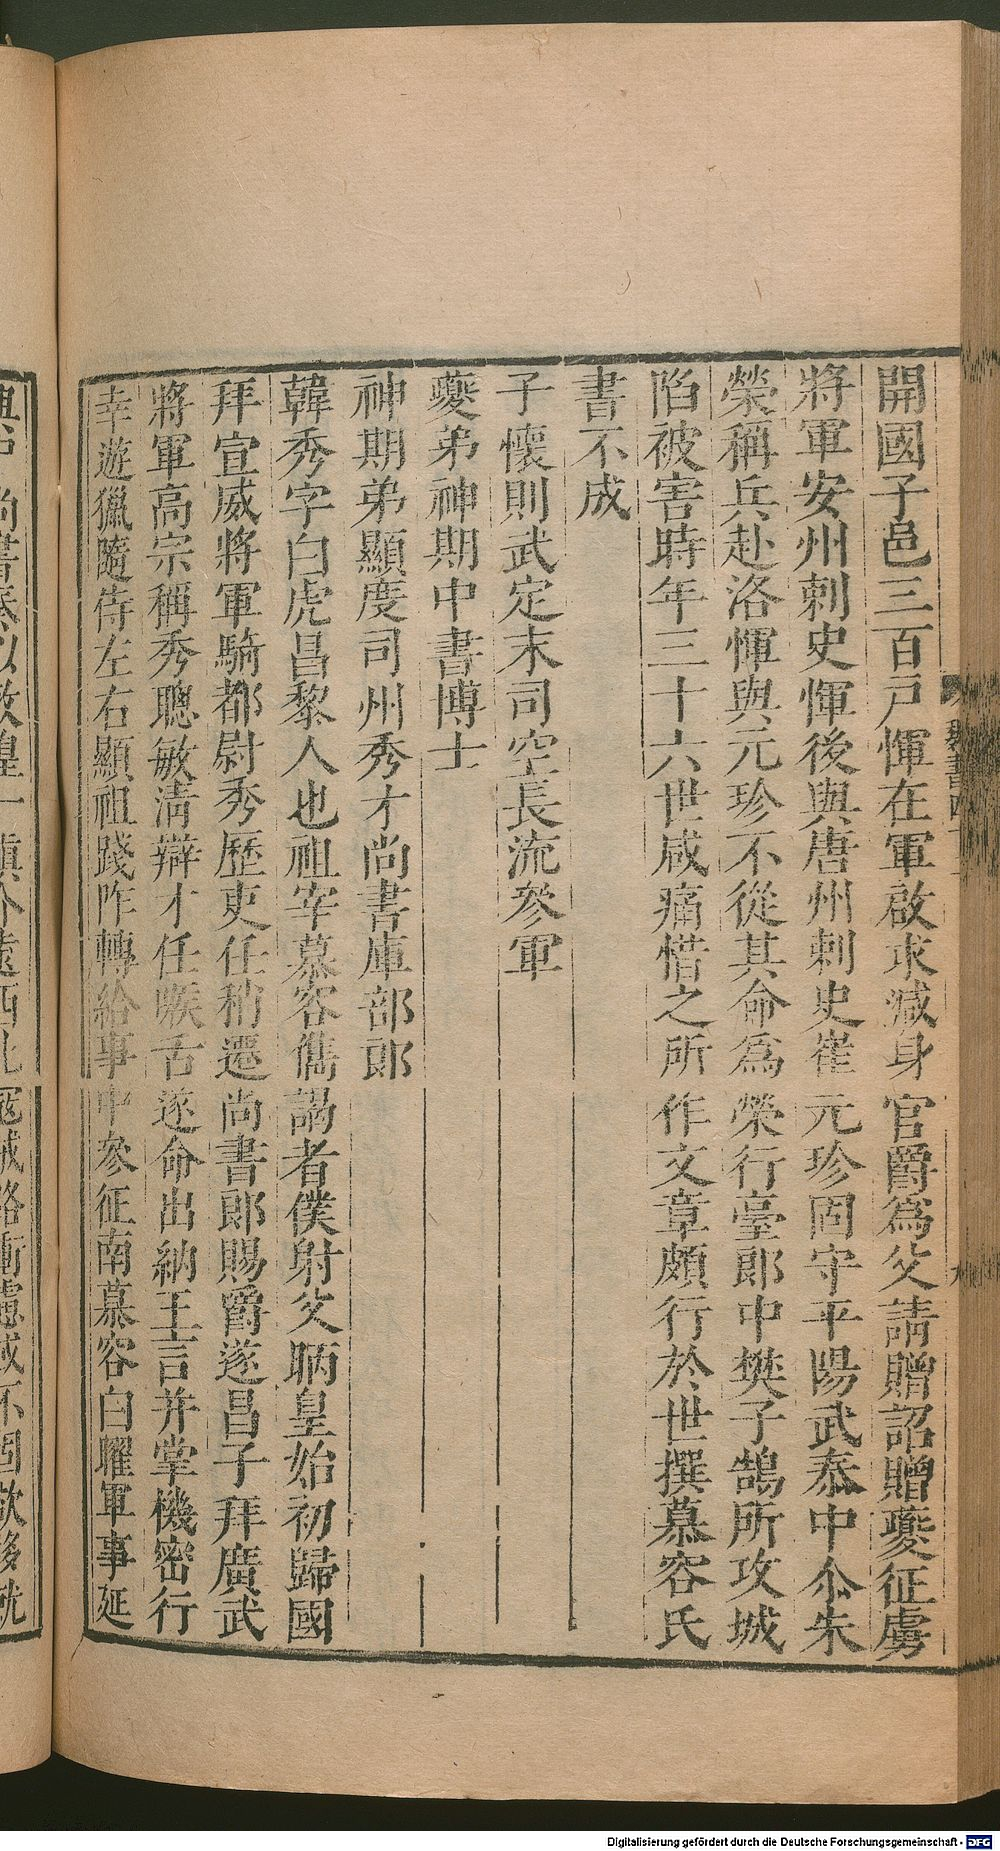 開國子邑三百戸惲在軍啟求減身官爵爲父請贈詔贈夔征虜
將軍安州刺史惲後與唐州刺史崔元珍固守平陽武泰中尒朱
榮稱兵赴洛惲與元珍不從其命爲榮行臺郎中樊子鵠所攻城
陷被害時年三十六世咸痛惜之所作文章頗行於世撰慕容氏
書不成
子懷則武定末司空長流參軍
夔弟神期中書博士
神期弟顯度司州秀才尚書庫部郎
韓秀字白虎昌黎人也祖宰慕容儁謁者僕射父昞皇始初歸國
拜宣威將軍騎都尉秀歷吏任稍遷尚書郎賜爵遂昌子拜廣武
將軍高宗稱秀聰敏清辯才任喉舌遂命出納王言并掌機密行
幸遊獵隨侍左右顯祖踐阼轉給事中參征南慕容白曜軍事延
Digitalisierung gefördert durch die Deutsche Forschungsgemeinschaft - DFG